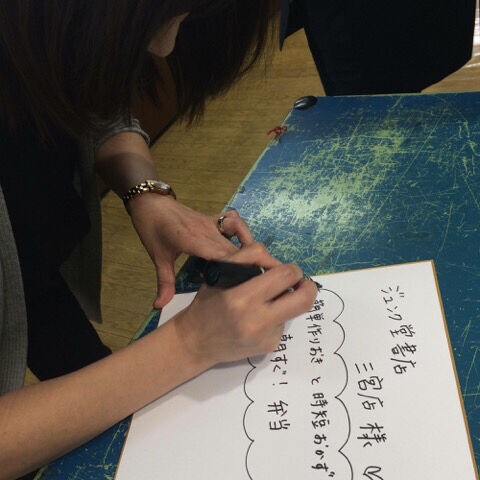 ジュンク堂書店
三宮店 様 ♡
簡単作りおき と 時短 おかず
朝すぐ! 弁当